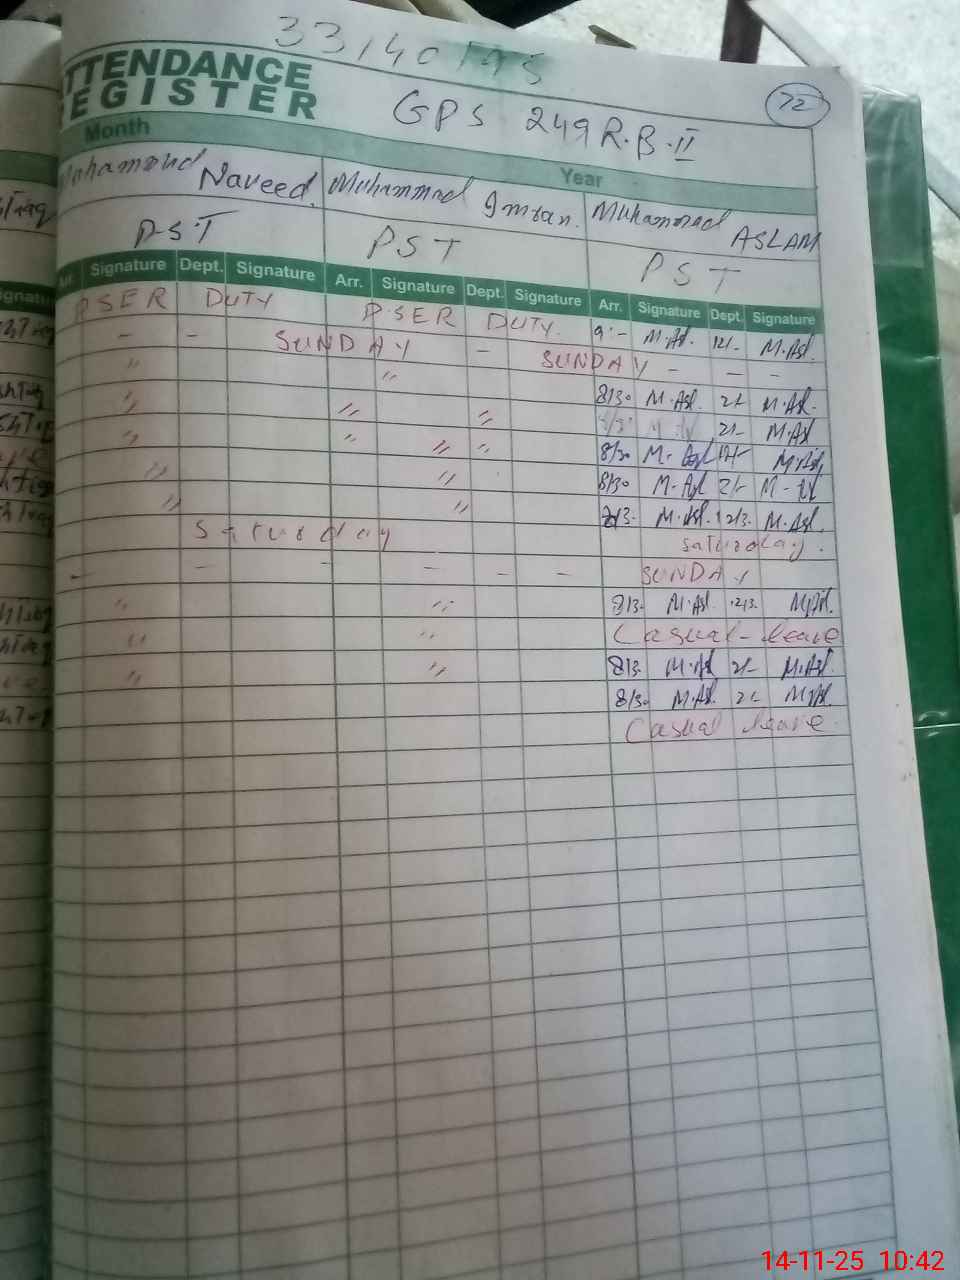 ATTENDANCE
REGISTER
GPS 249 R.B.II
72
Month
Year
Muhammad Naveed. Muhammad Imran. Muhammad ASLAM
PST PST PST
Arr. Signature Dept. Signature Arr. Signature Dept. Signature Arr. Signature Dept. Signature
PSER DUTY PSER DUTY. 9:- M.Asl. 12/- M.Asl.
- - SUNDAY - SUNDAY - - -
" " 8/30 M.Asl. 2/- M.Asl.
" " " 2/- M.Asl
" " " " 8/30 12/- M.Asl.
" " 8/30 M.Asl 2/-
" " M.Asl. 12/3. M.Asl.
Saturday Saturday.
- - - - - - SUNDAY
" " 8/3. M.Asl. 12/3. M.Asl.
" " Casual-leave
" " 8/3. M.Asl 2/- M.Asl.
8/30 M.Asl. 2/- M.Asl.
Casual leave
14-11-25 10:42